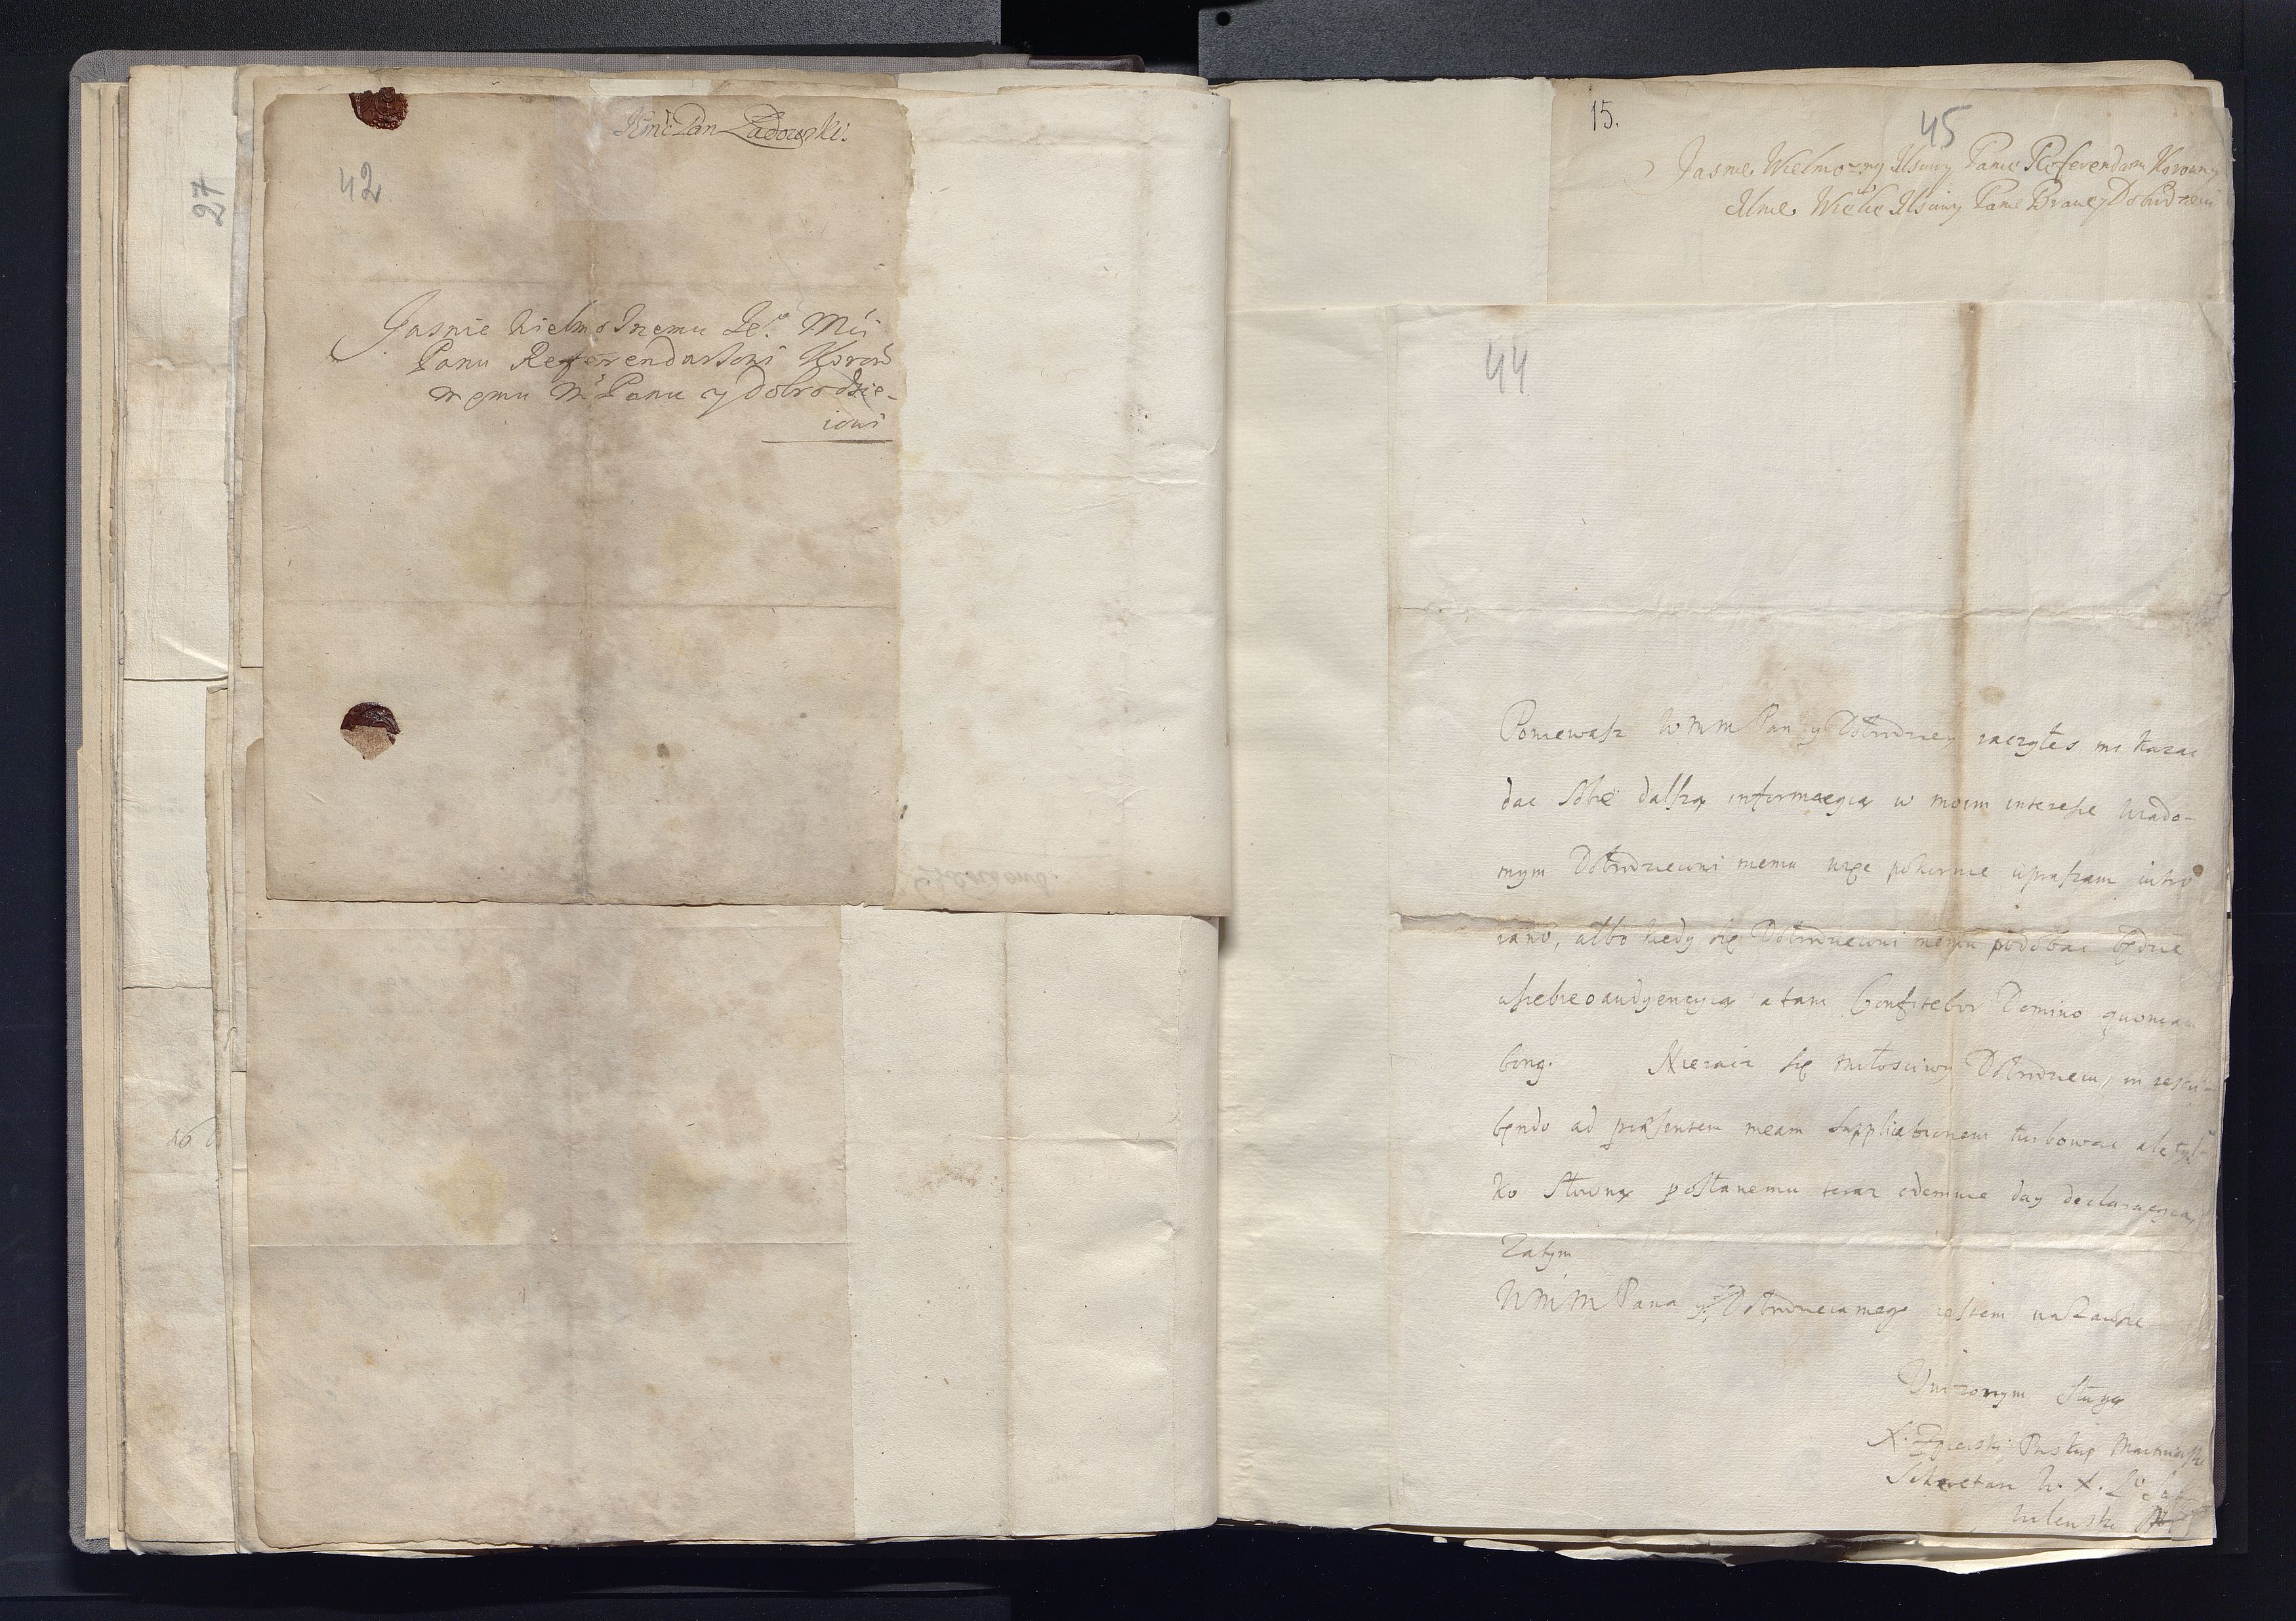 27
Jmć Pan Ladowski.
42
Jasnie Wielmożnemu Je⁰ Mći
Panu Referendarzowi Koron
memu Mᵉ Panu y Dobrodzie-
iowi
15.
45
Jasnie Wielmozny Msciwy Panie Referendarzu Koronny
Mnie Wielce Msciwy Panie Bracie y Dobrodzieiu
44
Poniewasz WMM Pan y Dobrodziey raczyłes mi kazac
dac sobie dalszą informacyią w moim interesie wiado-
mym Dobrodzieiowi memu więc pokornie upraszam iutro
rano, albo kiedy się Dobrodzieiowi memu podobac będzie
u siebie o audyencyią a tam Confitebor Domino quoniam
bong. Nieracz się miłosciwy Dobrodzieiu, in rescri-
bendo ad præsentem meam supplicationem turbowac ale tyl-
ko słowną posłanemu teraz odemnie day declaracyią,
Zatym
WMM Pana y Dobrodzieia mego iestem na zawsze
Unizonym sługą
Sekretarz W. X. L.